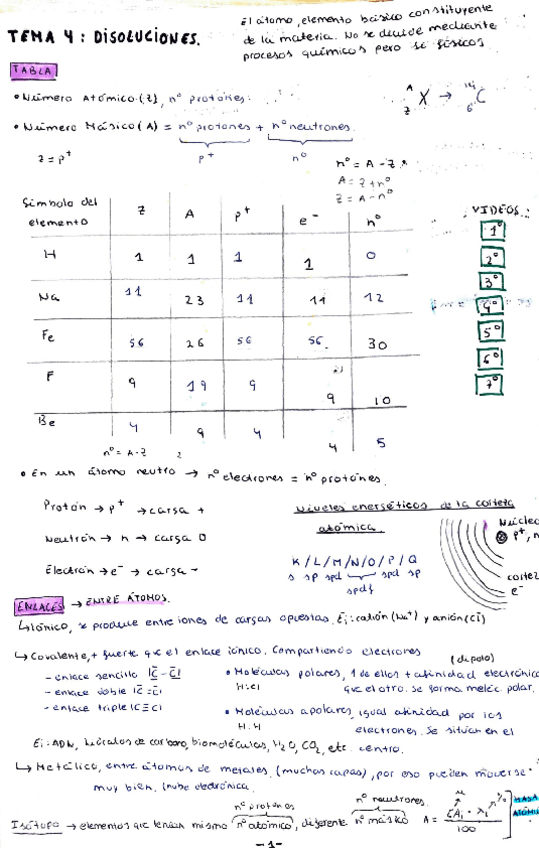 TEMA 4: DISOLUCIONES.
El átomo, elemento básico constituyente
de la materia. No se divide mediante
procesos químicos pero sí físicos
TABLA
• Número Atómico (Z), nº protones.
A X → 14 C
Z 6
• Número Másico (A) = nº protones + nº neutrones.
p+ nº
Z = p+
nº = A - Z
A = Z + nº
Z = A - nº
Símbolo del elemento Z A p+ e- nº
H 1 1 1 1 0
Na 11 23 11 11 12
Fe 56 26 56 56. 30
F 9 19 9 9 10
Be 4 9 4 4 5
VIDEOS:
1º
2º
3º
4º
5º
6º
7º
nº = A - Z
• En un átomo neutro → nº electrones = nº protónes.
Protón → p+ → carga +
Neutrón → n → carga 0
Electrón → e- → carga -
Niveles energéticos de la corteza
atómica.
K / L / M / N / O / P / Q
s sp spd spd sp
spdf
Núcleo
p+, n
cortez
e-
ENLACES → ENTRE ÁTOMOS.
↳ Iónico, se produce entre iones de cargas opuestas. Ej: catión (Na+) y anión (Cl)
↳ Covalente, + fuerte que el enlace iónico. Compartiendo electrones
- enlace sencillo
- enlace doble
- enlace triple
(dipolo)
• Moléculas polares, 1 de ellos + afinidad electrónica
H:Cl que el otro. Se forma molec. polar.
• Moléculas apolares, igual afinidad por los
H·H electrones. Se sitúan en el
centro.
Ej: ADN, hidratos de carbono, biomoléculas, H2O, CO2, etc.
↳ Metálico, entre átomos de metales, (muchas capas), por eso pueden moverse
muy bien. (nube electrónica.
nº protones nº neutrones.
Isótopo → elementos que tenían mismo nº atómico, diferente nº másico
100
MASA
-1-